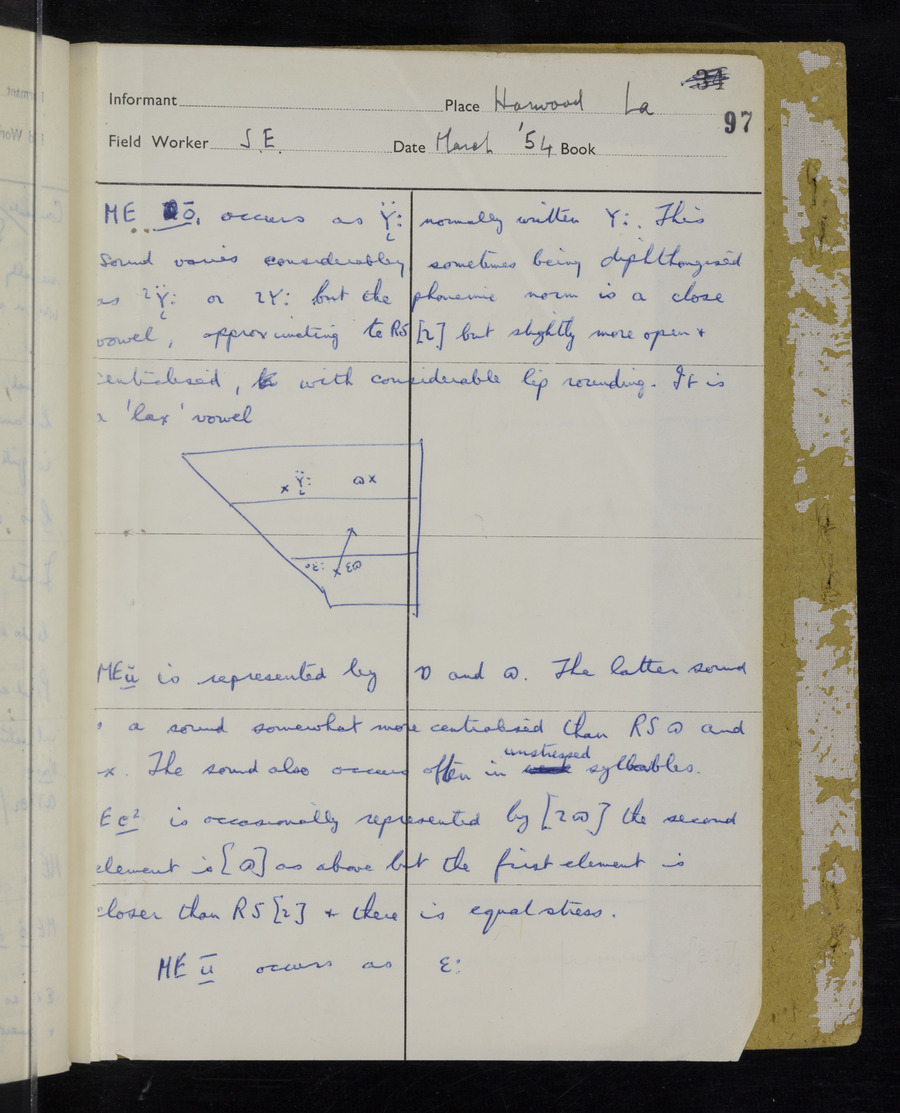 34
97
Informant Place Harwood La
Field Worker S.E. Date March '54 Book
ME ō₁ occurs as Ÿ: normally written Y:. This
sound varies considerably sometimes being diphthongised
as ɪŸ: or ɪY: but the phonemic norm is a close
vowel, approximating to RS [ɪ] but slightly more open +
centralised, with considerable lip rounding. It is
a 'lax' vowel
x Ÿ: ɷ x
ɛ: x ɛɷ
ME ŭ is represented by ɒ and ɷ. The latter sound
a sound somewhat more centralised than RS ɷ and
x. The sound also occurs often in unstressed syllables.
E e² is occasionally represented by [ɪɷ] the second
element is [ɷ] as above but the first element is
closer than RS [ɪ] + there is equal stress.
ME ū occurs as ɛ: